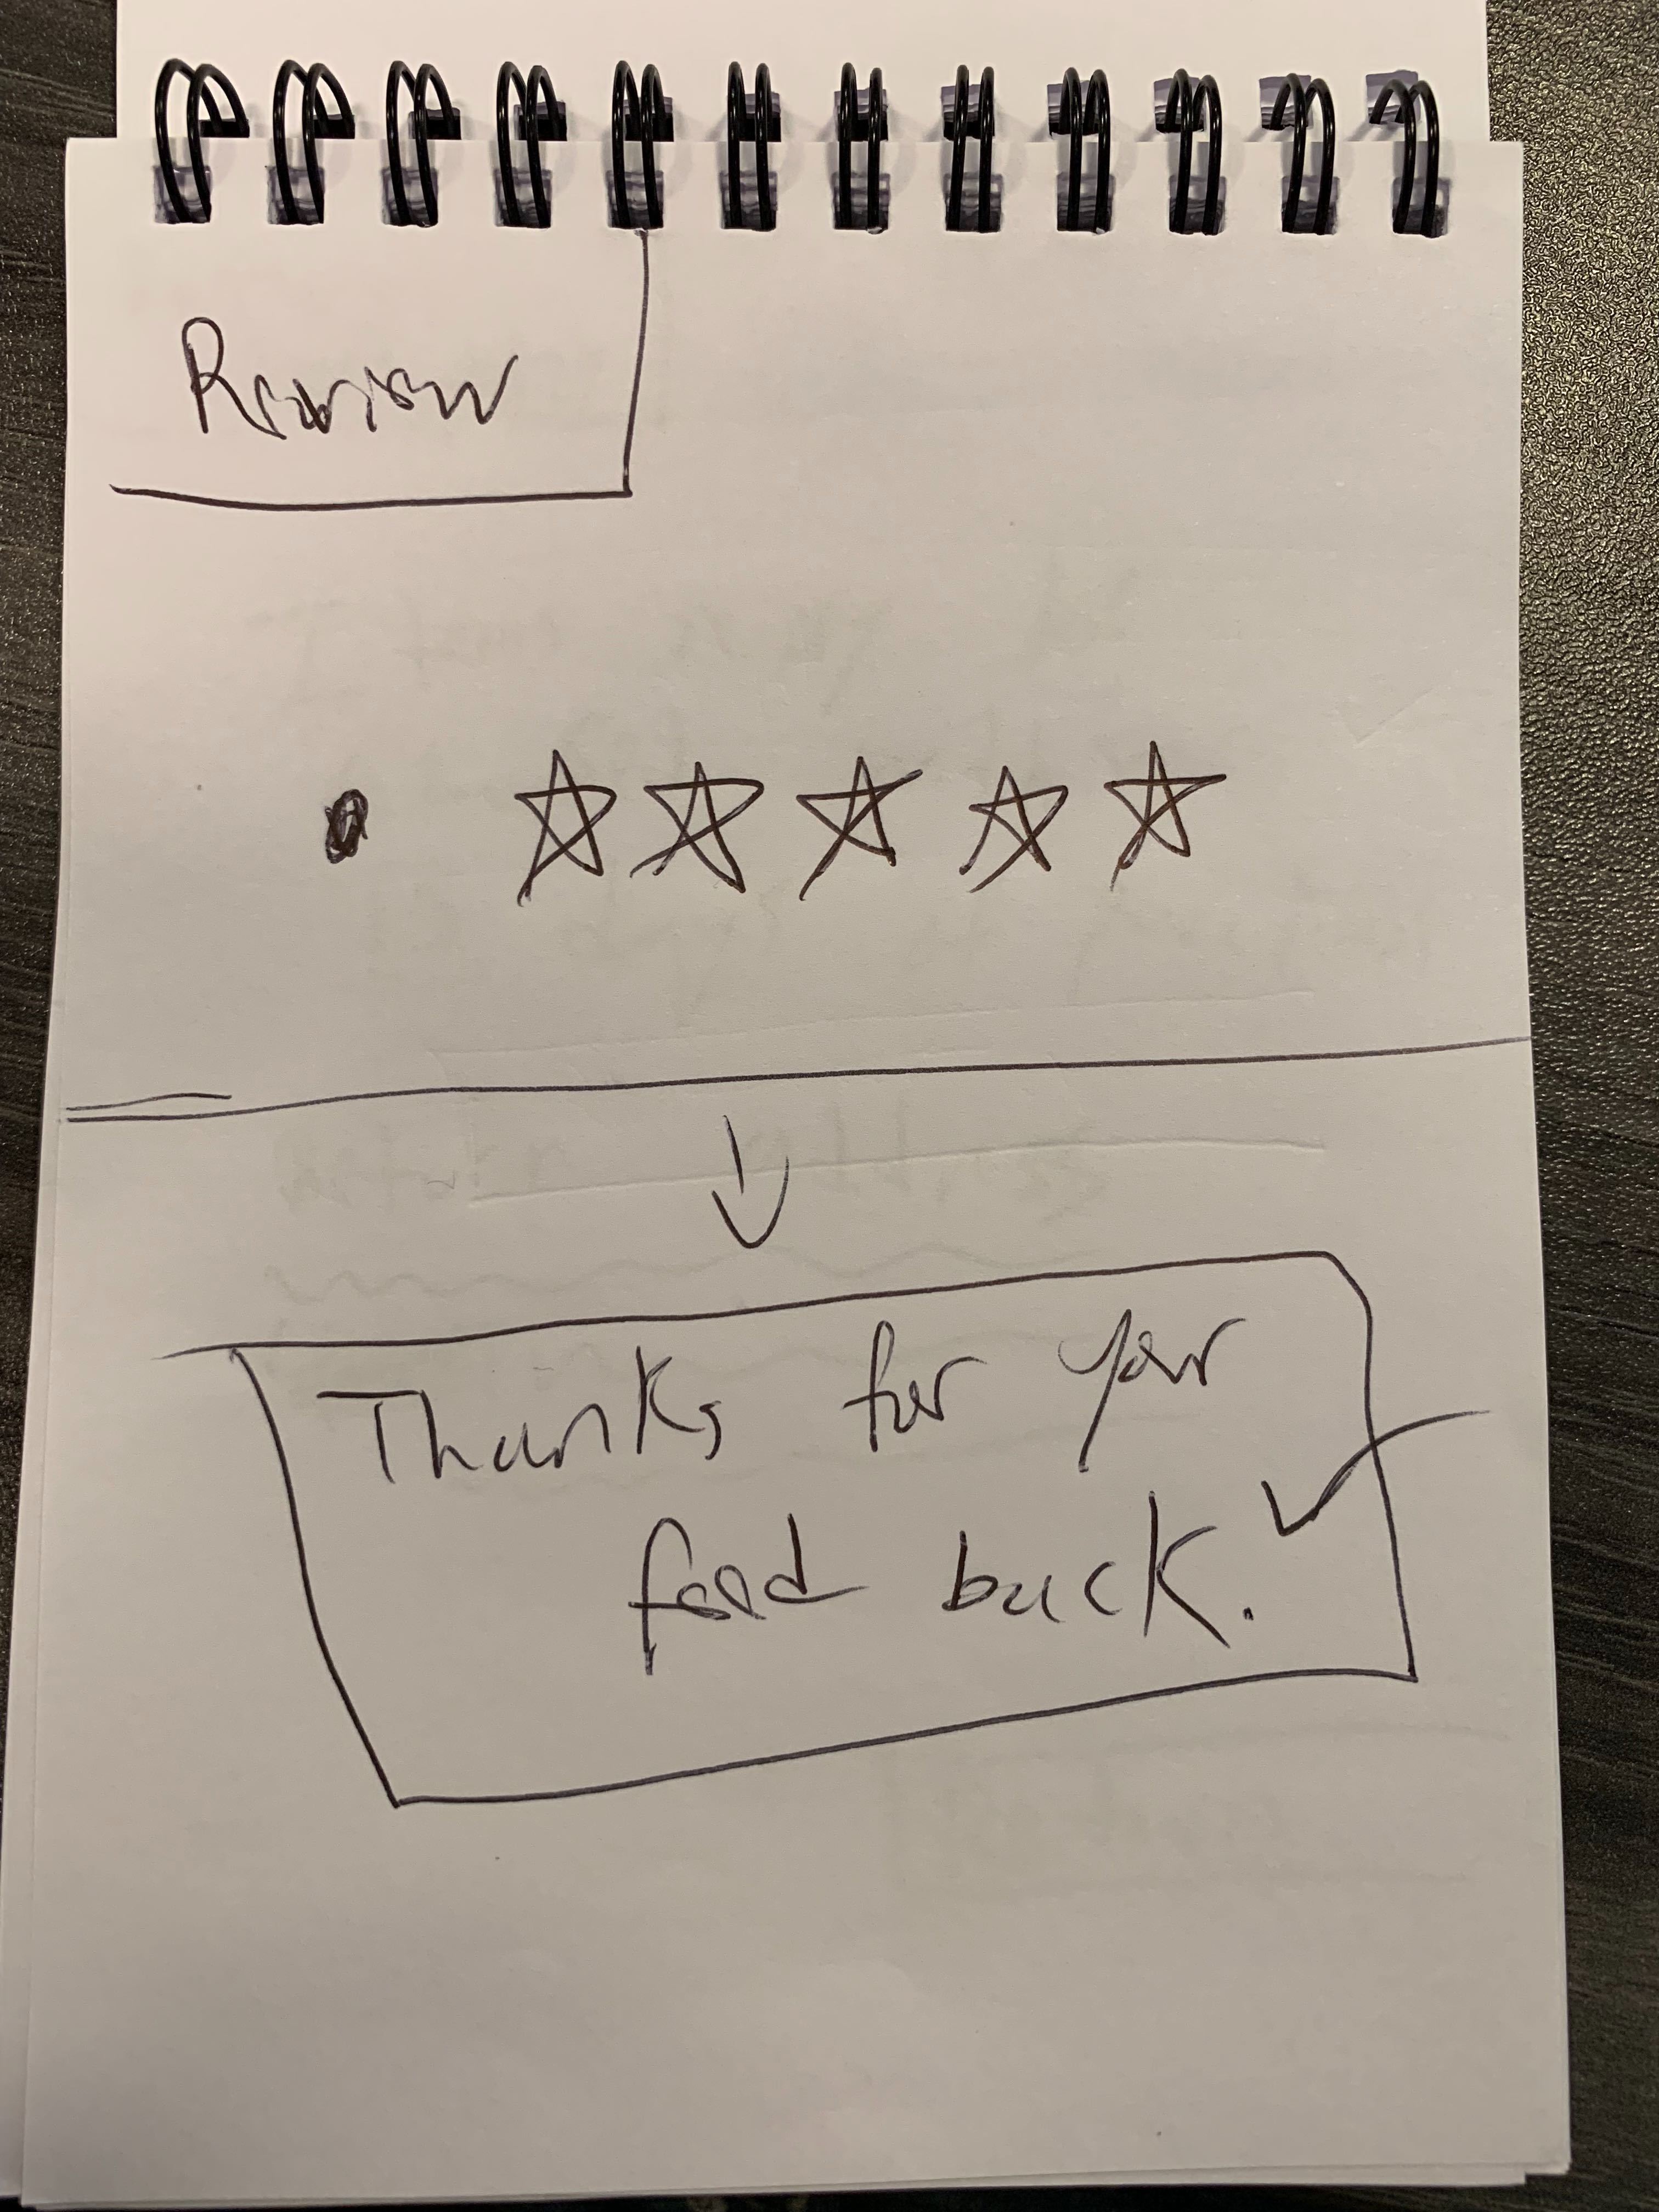 Review
Thanks for your
feed back.